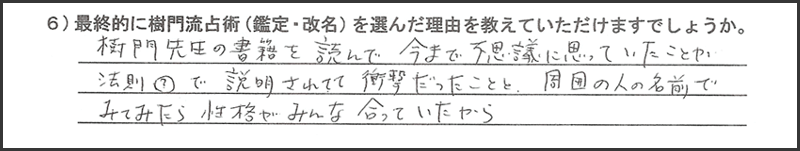 6）最終的に樹門流占術（鑑定・改名）を選んだ理由を教えていただけますでしょうか。
樹門先生の書籍を読んで 今まで不思議に思っていたことが
法則？で説明されてて衝撃だったことと、周囲の人の名前で
みてみたら性格がみんな合っていたから